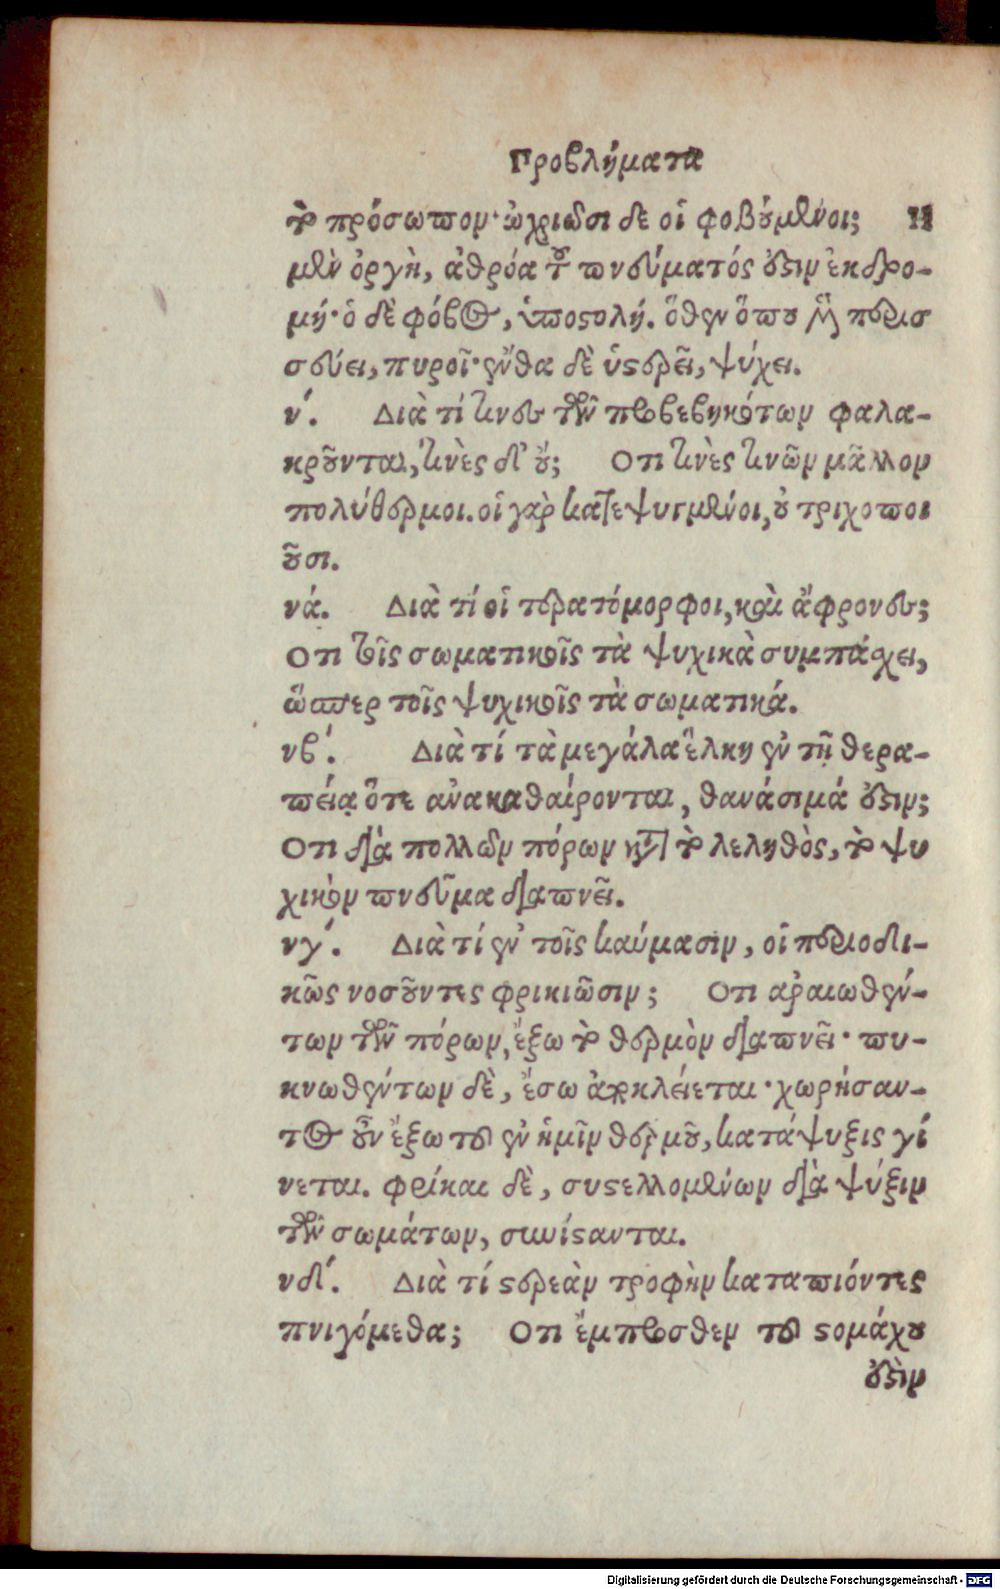 Προβλήματα
τὸ πρόσωπον· ὠχριῶσι δὲ οἱ φοβούμενοι; Ἡ
μὲν ὀργὴ, ἀθρόα τοῦ πνεύματός ἐστιν ἐκδρο-
μή· ὁ δὲ φόβος, ὑποστολή. ὅθεν ὅπου μὲν περισ
σεύει, πυροῖ· ἔνθα δὲ ὑστερεῖ, ψύχει.
ν΄. Διὰ τί τινες τῶν προβεβηκότων φαλα-
κροῦνται, τινὲς δ' οὔ; Ὅτι τινὲς τινῶν μᾶλλον
πολύθερμοι. οἱ γὰρ κατεψυγμένοι, οὐ τριχοποι
οῦσι.
να΄. Διὰ τί οἱ τερατόμορφοι, καὶ ἄφρονες;
Ὅτι τοῖς σωματικοῖς τὰ ψυχικὰ συμπάσχει,
ὥσπερ τοῖς ψυχικοῖς τὰ σωματικά.
νβ΄. Διὰ τί τὰ μεγάλα ἕλκη ἐν τῇ θερα-
πείᾳ ὅτε ἀνακαθαίρονται, θανάσιμά ἐστιν;
Ὅτι διὰ πολλῶν πόρων κατὰ τὸ λεληθὸς, τὸ ψυ
χικὸν πνεῦμα διαπνεῖ.
νγ΄. Διὰ τί ἐν τοῖς καύμασιν, οἱ περιοδι-
κῶς νοσοῦντες φρικιῶσιν; Ὅτι ἀραιωθέν-
των τῶν πόρων, ἔξω τὸ θερμὸν διαπνεῖ· πυ-
κνωθέντων δὲ, ἔσω ἀποκλείεται· χωρήσαν-
τος οὖν ἔξω τοῦ ἐν ἡμῖν θερμοῦ, κατάψυξις γί
νεται. φρίκαι δὲ, συστελλομένων διὰ ψύξιν
τῶν σωμάτων, συνίστανται.
νδ΄. Διὰ τί στερεὰν τροφὴν καταπιόντες
πνιγόμεθα; Ὅτι ἔμπροσθεν τοῦ στομάχου
ἐστὶν
Digitalisierung gefördert durch die Deutsche Forschungsgemeinschaft - DFG